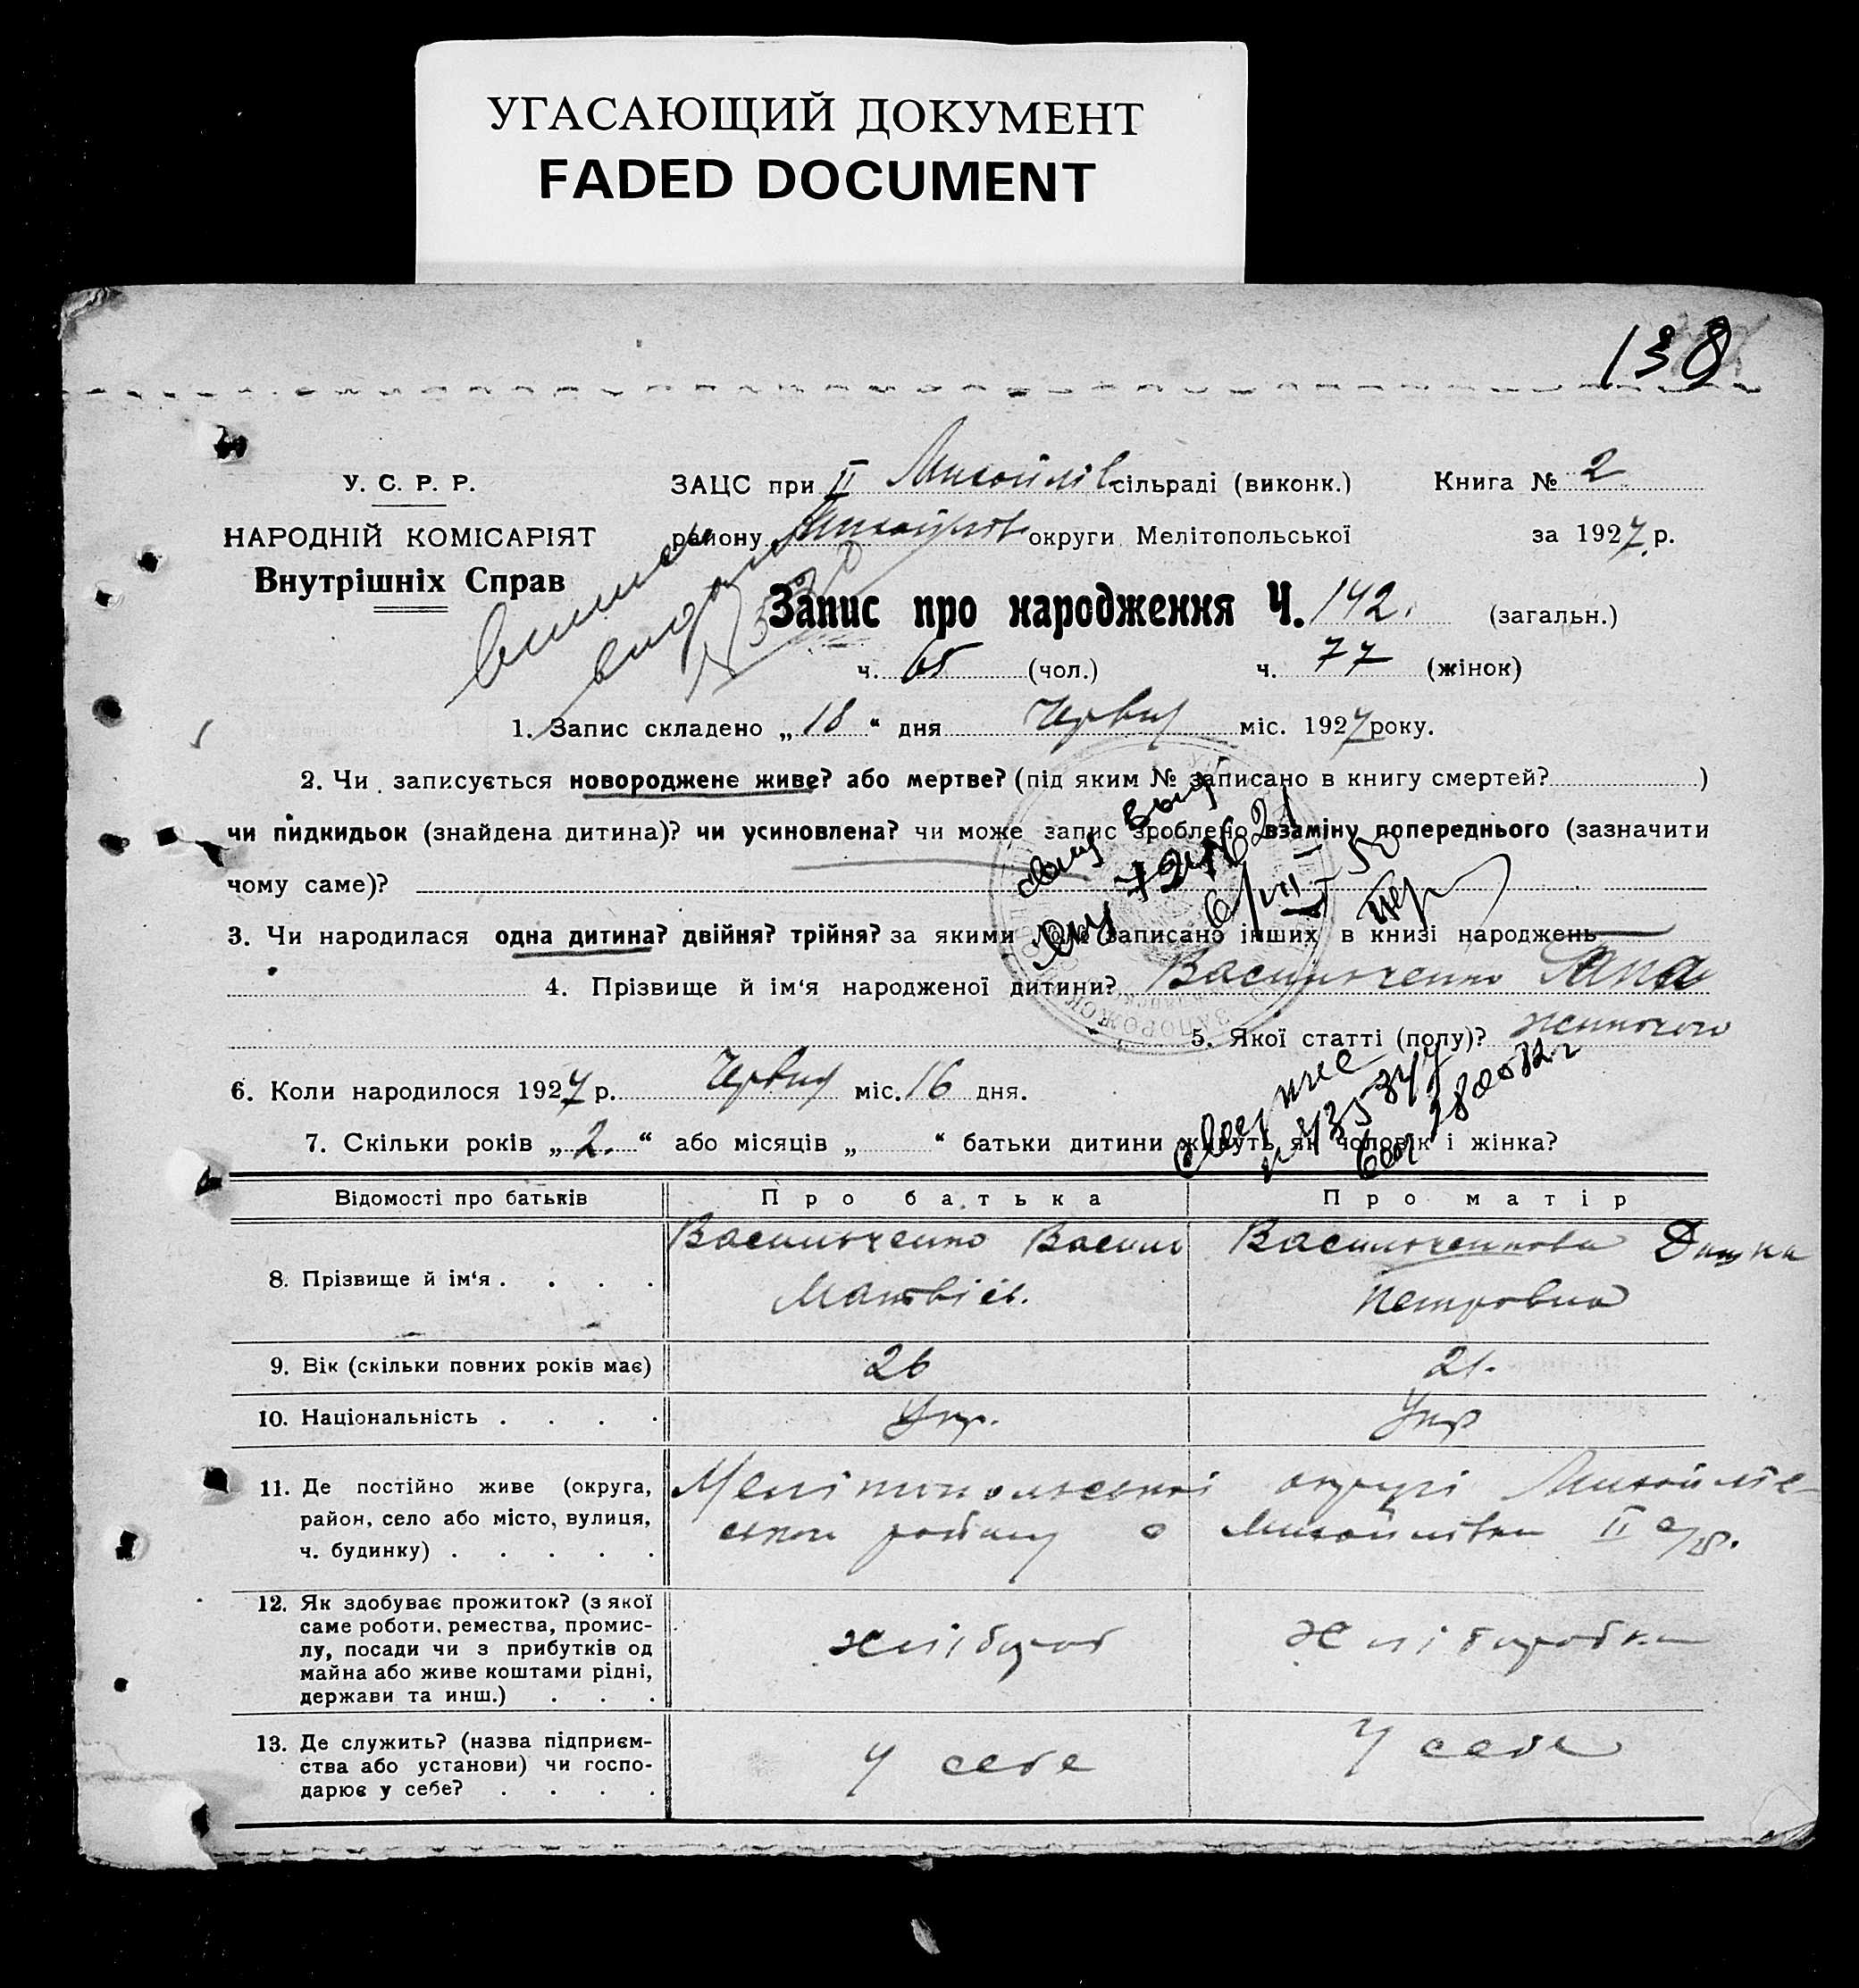 УГАСАЮЩИЙ ДОКУМЕНТ
FADED DOCUMENT
138
У. С. Р. Р.
НАРОДНІЙ КОМІСАРІЯТ
Внутрішніх Справ
ЗАЦС при II Михайлів сільраді (виконк.) Книга № 2
району Михайлів округи Мелітопольської за 1927 р.
Запис про народження Ч. 142. (загальн.)
ч. 65 (чол.) ч. 77 (жінок)
1. Запис складено „18“ дня Червня міс. 1927 року.
2. Чи записується новороджене живе? або мертве? (під яким № записано в книгу смертей? )
чи підкидьок (знайдена дитина)? чи усиновлена? чи може запис зроблено взаміну попереднього (зазначити
чому саме)?
3. Чи народилася одна дитина? двійня? трійня? за якими №№ записано інших в книзі народжень
4. Прізвище й ім'я народженої дитини? Васильченко Ганна
5. Якої статті (полу)? жіночого
6. Коли народилося 1927 р. Червня міс. 16 дня.
7. Скільки років „2.“ або місяців „ “ батьки дитини живуть як чоловік і жінка?
Відомості про батьків Про батька Про матір
8. Прізвище й ім'я . . . . Васильченко Василь Матвіїв. Васильченкова Дашка Петровна
9. Вік (скільки повних років має) 26 21.
10. Національність . . . . Укр. Укр
11. Де постійно живе (округа, Мелітопольської округи Михайлів-
район, село або місто, вулиця, ської району с Михайлівка II с/р.
ч. будинку) . . . . .
12. Як здобуває прожиток? (з якої
саме роботи, ремества, промис-
лу, посади чи з прибутків од хлібороб хліборобка
майна або живе коштами рідні,
держави та инш.) . . .
13. Де служить? (назва підприєм-
ства або установи) чи госпо- У себе У себе
дарює у себе? . . . .